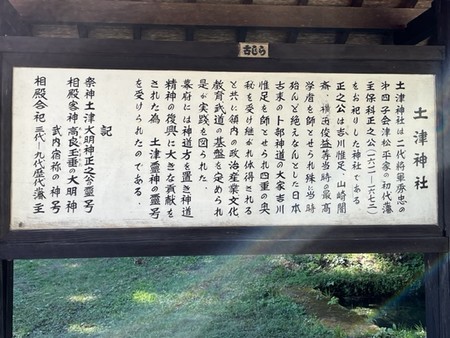 古じら
土津神社
土津神社は二代将軍秀忠の
第四子会津松平家の初代藩
主保科正之公(一六一一~一六七三)
をお祀りした神社である
正之公は吉川惟足、山崎闇
斎、横田俊益等当時の最高
学者を師とせられ殊に当時
殆んど絶えなんとした日本
古来の卜部神道の大家吉川
惟足を師とせられ四重の奥
秘を受け継がれ体得される
と共に領内の政治産業文化
教育武道の基盤を定められ
是が実践を図られた。
幕府には神道方を置き神道
精神の復興に大きな貢献を
された為 土津霊神の霊号
を受けられたのである
記
祭神土津大明神正之公霊号
相殿客神 高良玉垂の大明神
武内宿祢の神号
相殿合祀 三代~九代歴代藩主